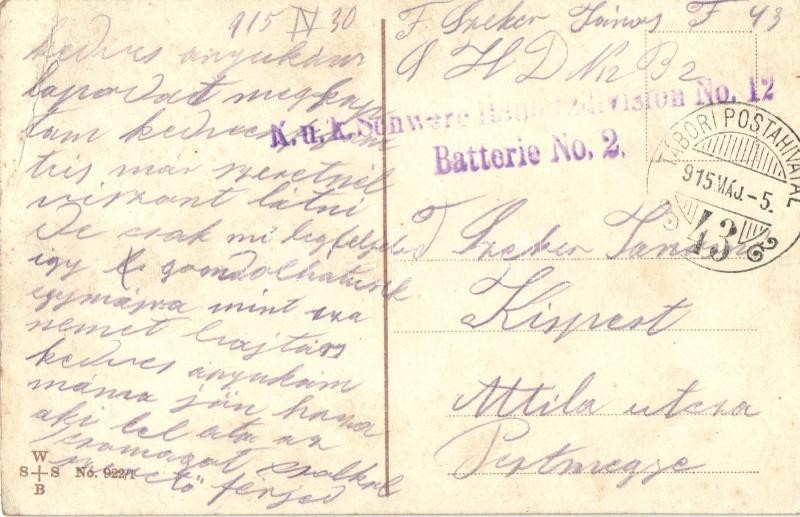 915 IV 30
kedves anyukám
lapodat megkap
tam kedves
tris már szeretnél
viszont látni
De csak mi
így gondolhatunk
egymásra mint
német bajtárs
kedves anyukám
máma jön haza
aki fel adta az
csomagot
szerető férjed
W
S S No. 922/1
B
F. Szeker János F 43
S H D No B 2
K.u.k. Schwere Haubitzdivision No. 12
Batterie No. 2.
TÁBORI POSTAHIVATAL
915 MÁJ.-5.
43
Szeker
Kispest
Attila utcza
Pestmegye